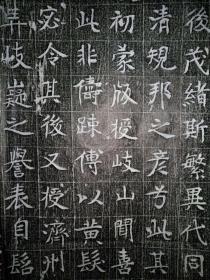 後茂緒斯繁異代同
清規邦之彦兮此其
初蒙版授岐山聞喜
此非儔踈傅以黄髮
宓令其後又授濟州
岐嶷之譽表自髫